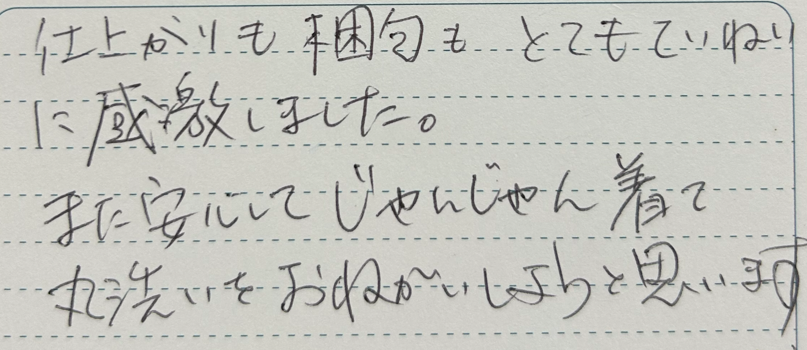 仕上がりも梱包も とてもていねい
に感激しました。
また安心して じゃんじゃん着て
丸洗いを おねがいしようと思います